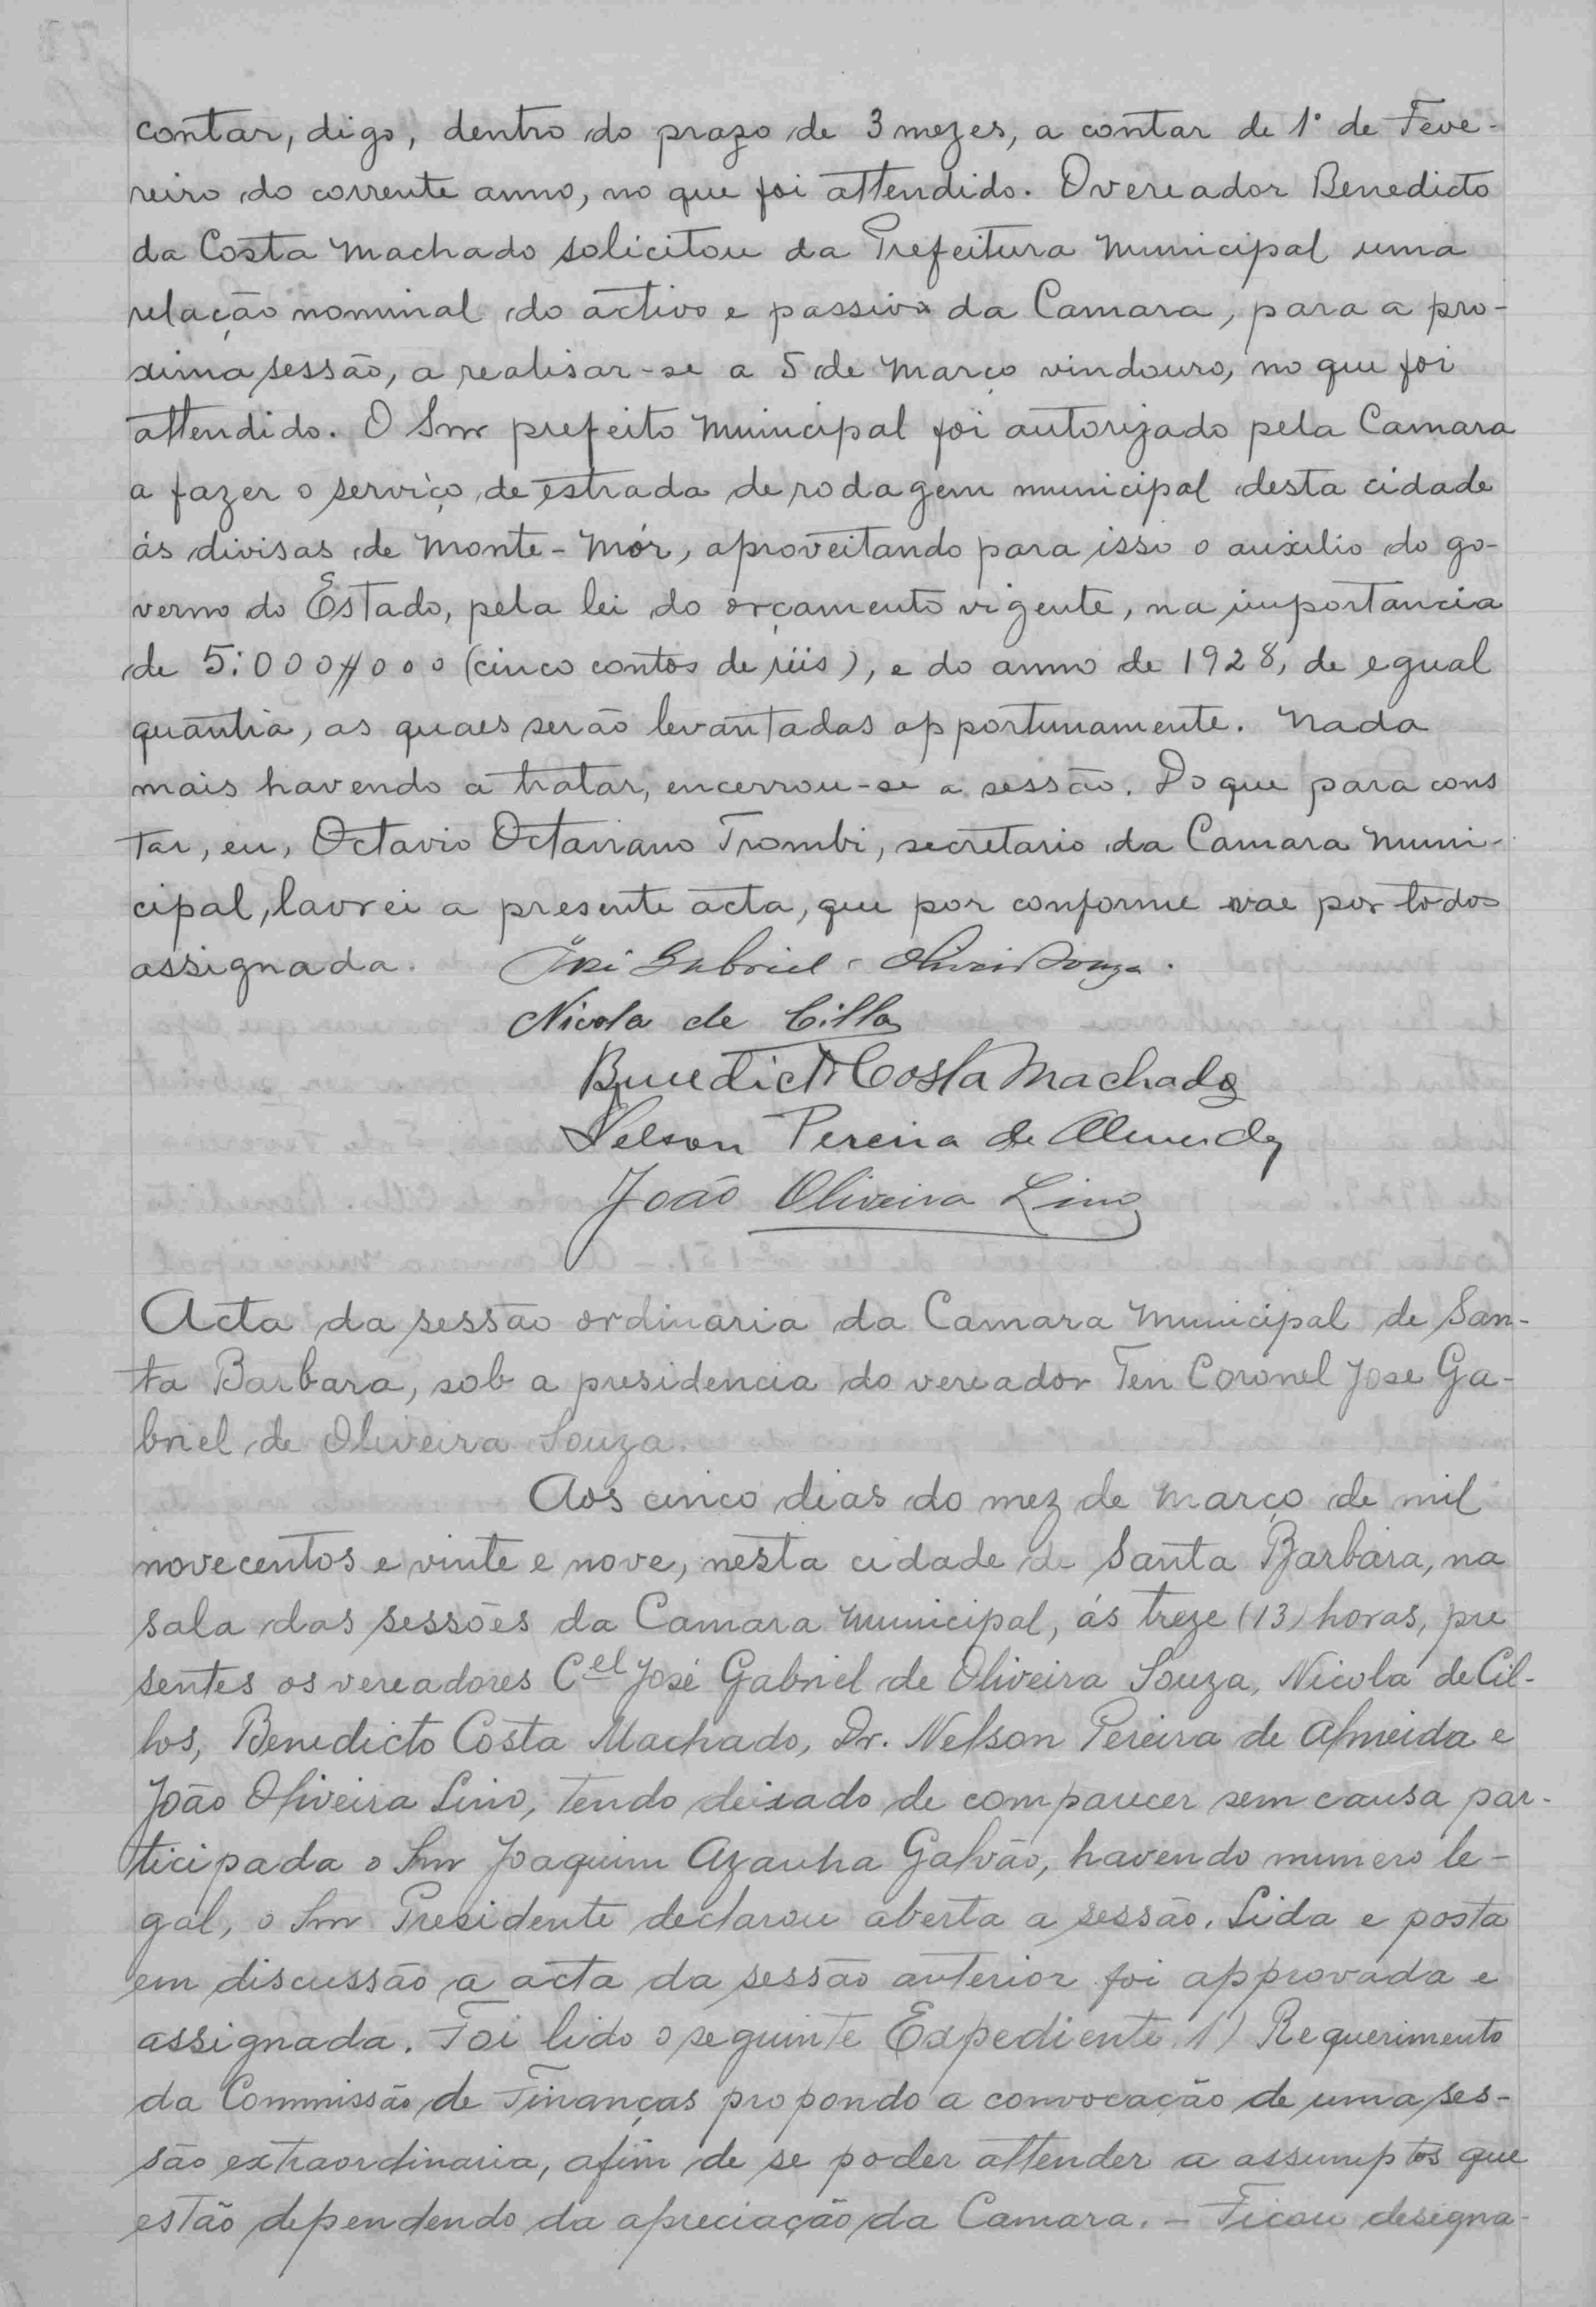 contar, digo, dentro do prazo de 3 mezes, a contar de 1º de Feve-
reiro do corrente anno, no que foi attendido. O vereador Benedicto
da Costa Machado solicitou da Prefeitura Municipal uma
relação nominal do activo e passivo da Camara, para a pro-
xima sessão, a realisar-se a 5 de Março vindouro, no que foi
attendido. O Snr prefeito Municipal foi autorizado pela Camara
a fazer o serviço de estrada de rodagem municipal desta cidade
ás divisas de Monte-Mór, aproveitando para isso o auxilio do go-
verno do Estado, pela lei do orçamento vigente, na importancia
de 5:000$000 (cinco contos de réis), e do anno de 1928, de egual
quantia, as quaes serão levantadas opportunamente. Nada
mais havendo a tratar, encerrou-se a sessão. Do que para cons
tar, eu, Octavio Octaviano Trombi, secretario da Camara Muni-
cipal, lavrei a presente acta, que por conforme vae por todos
assignada. José Gabriel Oliveira Souza.
Nicola de Cillo
Benedicto Costa Machado
Nelson Pereira de Almeida
João Oliveira Lino
Acta da sessão ordinaria da Camara Municipal de San-
ta Barbara, sob a presidencia do vereador Ten Coronel José Ga-
briel de Oliveira Souza.
Aos cinco dias do mez de Março de mil
novecentos e vinte e nove, nesta cidade de Santa Barbara, na
sala das sessões da Camara Municipal, ás treze (13) horas, pre
sentes os vereadores Cel José Gabriel de Oliveira Souza, Nicola de Cil-
los, Benedicto Costa Machado, Dr. Nelson Pereira de Almeida e
João Oliveira Lino, tendo deixado de comparecer sem causa par-
ticipada o Snr Joaquim Azanha Galvão, havendo numero le-
gal, o Snr Presidente declarou aberta a sessão. Lida e posta
em discussão a acta da sessão anterior foi approvada e
assignada. Foi lido o seguinte Expediente. 1) Requerimento
da Commissão de Finanças propondo a convocação de uma ses-
são extraordinaria, afim de se poder attender a assumptos que
estão dependendo da apreciação da Camara. - Ficou designa-